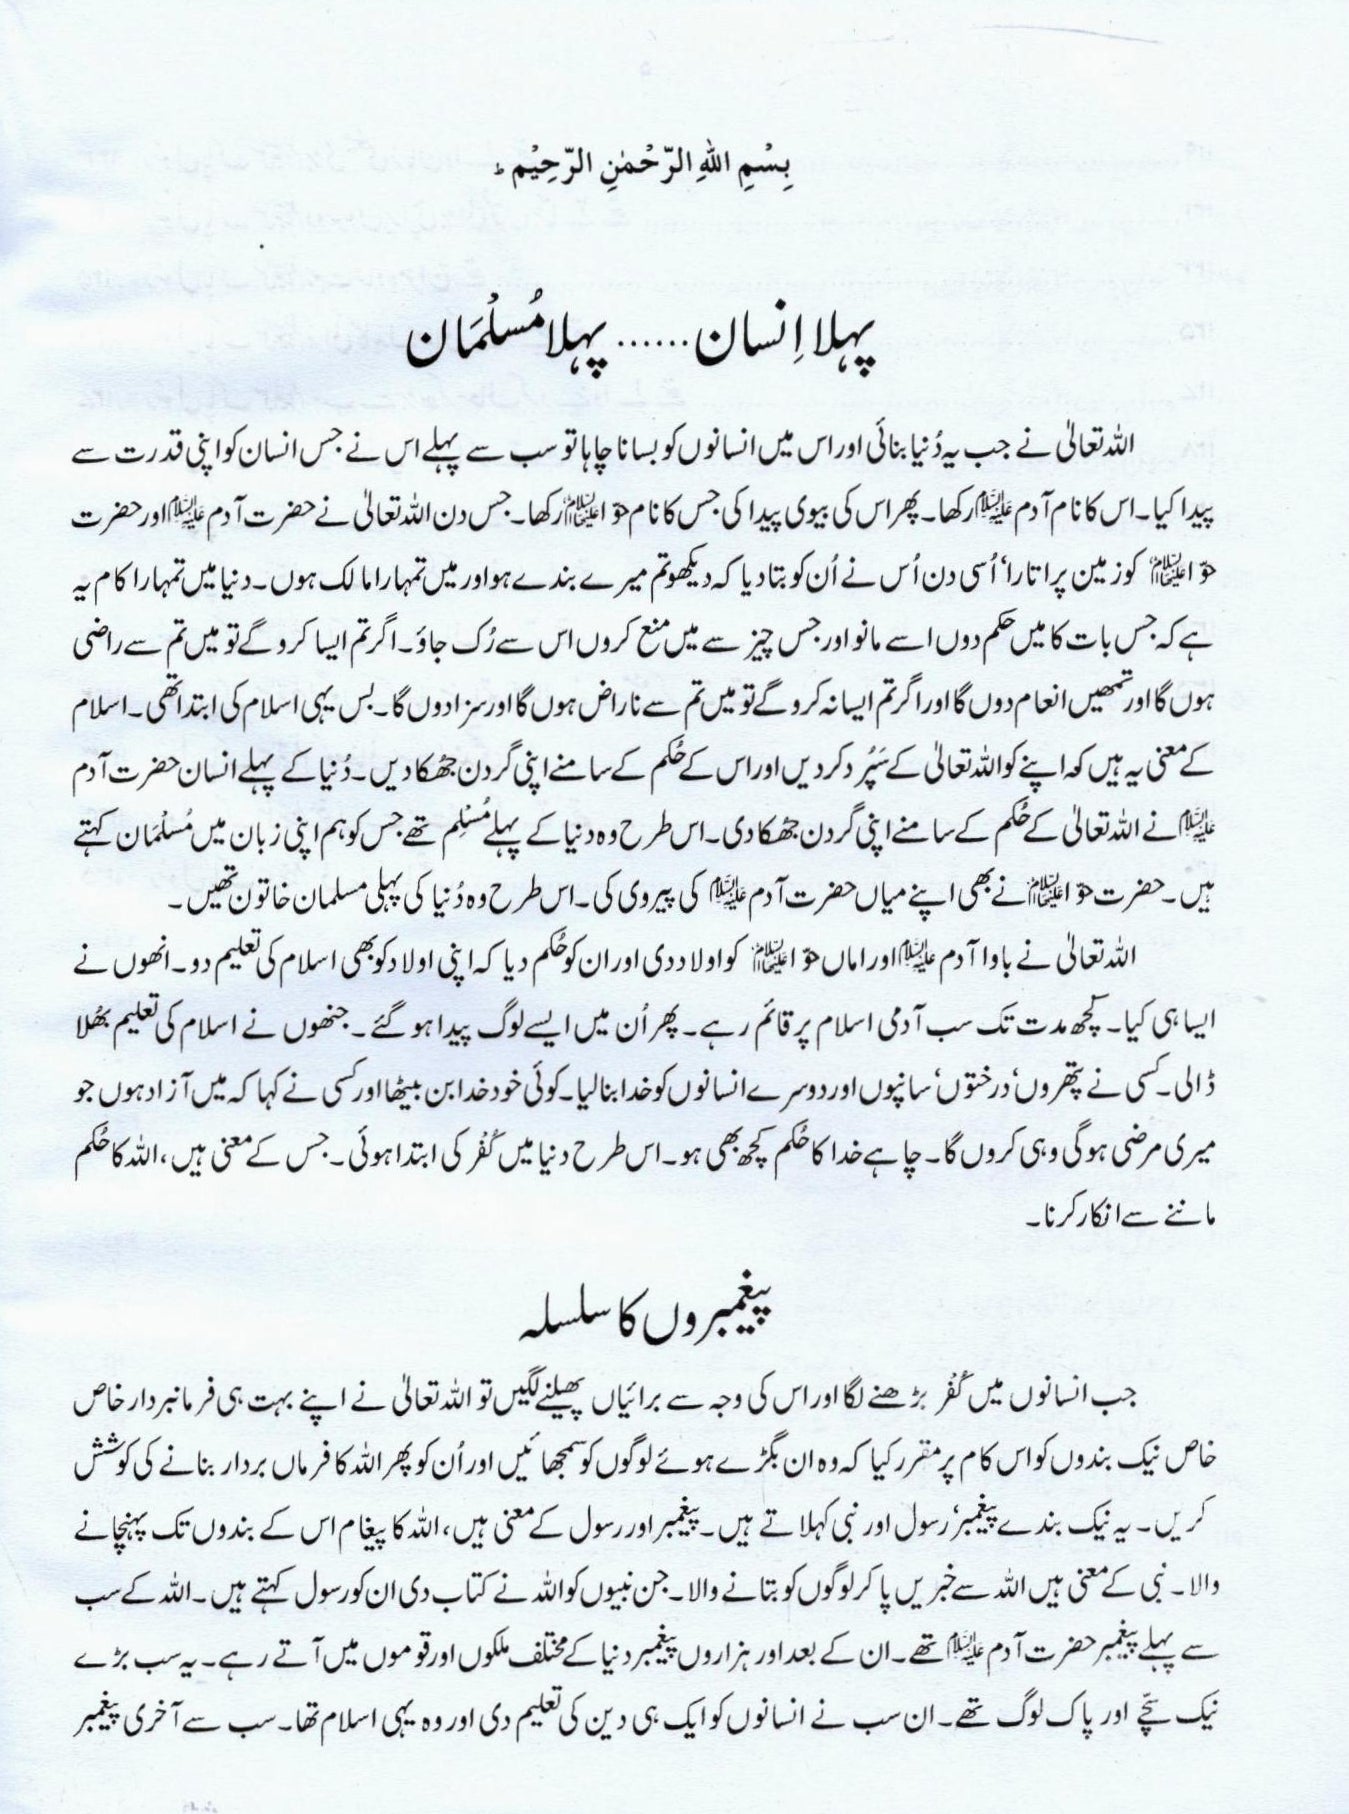 بِسْمِ اللهِ الرَّحْمٰنِ الرَّحِيْمِ ط
پہلا اِنسان ...... پہلا مُسلْمَان
اللہ تعالیٰ نے جب یہ دُنیا بنائی اور اس میں انسانوں کو بسانا چاہا تو سب سے پہلے اس نے جس انسان کو اپنی قدرت سے
پیدا کیا۔ اس کا نام آدم علیہ السلام رکھا۔ پھر اس کی بیوی پیدا کی جس کا نام حوّا علیہا السلام رکھا۔ جس دن اللہ تعالیٰ نے حضرت آدم علیہ السلام اور حضرت
حوّا علیہا السلام کو زمین پر اتارا‘ اُسی دن اُس نے اُن کو بتا دیا کہ دیکھو تم میرے بندے ہو اور میں تمہارا مالک ہوں۔ دنیا میں تمہارا کام یہ
ہے کہ جس بات کا میں حکم دوں اسے مانو اور جس چیز سے میں منع کروں اس سے رُک جاؤ۔ اگر تم ایسا کرو گے تو میں تم سے راضی
ہوں گا اور تمھیں انعام دوں گا اور اگر تم ایسا نہ کرو گے تو میں تم سے ناراض ہوں گا اور سزا دوں گا۔ بس یہی اسلام کی ابتدا تھی۔ اسلام
کے معنی یہ ہیں کہ اپنے کو اللہ تعالیٰ کے سَپُرد کردیں اور اس کے حُکم کے سامنے اپنی گردن جُھکا دیں۔ دُنیا کے پہلے انسان حضرت آدم
علیہ السلام نے اللہ تعالیٰ کے حُکم کے سامنے اپنی گردن جُھکا دی۔ اس طرح وہ دنیا کے پہلے مُسْلِم تھے جس کو ہم اپنی زبان میں مُسلْمَان کہتے
ہیں۔ حضرت حوّا علیہا السلام نے بھی اپنے میاں حضرت آدم علیہ السلام کی پیروی کی۔ اس طرح وہ دُنیا کی پہلی مسلمان خاتون تھیں۔
اللہ تعالیٰ نے باوا آدم علیہ السلام اور اماں حوّا علیہا السلام کو اولاد دی اور ان کو حُکم دیا کہ اپنی اولاد کو بھی اسلام کی تعلیم دو۔ انھوں نے
ایسا ہی کیا۔ کُچھ مدت تک سب آدمی اسلام پر قائم رہے۔ پھر اُن میں ایسے لوگ پیدا ہو گئے۔ جنھوں نے اسلام کی تعلیم بُھلا
ڈالی۔ کسی نے پتھروں‘ درختوں‘ سانپوں اور دوسرے انسانوں کو خدا بنا لیا۔ کوئی خود خدا بن بیٹھا اور کسی نے کہا کہ میں آزاد ہوں جو
میری مرضی ہو گی وہی کروں گا۔ چاہے خدا کا حُکم کچھ بھی ہو۔ اس طرح دنیا میں کُفْر کی ابتدا ہوئی۔ جس کے معنی ہیں، اللہ کا حُکم
ماننے سے انکار کرنا۔
پیغمبروں کا سلسلہ
جب انسانوں میں کُفْر بڑھنے لگا اور اس کی وجہ سے برائیاں پھیلنے لگیں تو اللہ تعالیٰ نے اپنے بہت ہی فرمانبردار خاص
خاص نیک بندوں کو اس کام پر مقرر کیا کہ وہ ان بگڑے ہوئے لوگوں کو سمجھائیں اور اُن کو پھر اللہ کا فرماں بردار بنانے کی کوشش
کریں۔ یہ نیک بندے پیغمبر‘ رسول اور نبی کہلاتے ہیں۔ پیغمبر اور رسول کے معنی ہیں، اللہ کا پیغام اس کے بندوں تک پہنچانے
والا۔ نبی کے معنی ہیں اللہ سے خبریں پا کر لوگوں کو بتانے والا۔ جن نبیوں کو اللہ نے کتاب دی ان کو رسول کہتے ہیں۔ اللہ کے سب
سے پہلے پیغمبر حضرت آدم علیہ السلام تھے۔ ان کے بعد اور ہزاروں پیغمبر دنیا کے مختلف ملکوں اور قوموں میں آتے رہے۔ یہ سب بڑے
نیک سچّے اور پاک لوگ تھے۔ ان سب نے انسانوں کو ایک ہی دین کی تعلیم دی اور وہ یہی اسلام تھا۔ سب سے آخری پیغمبر